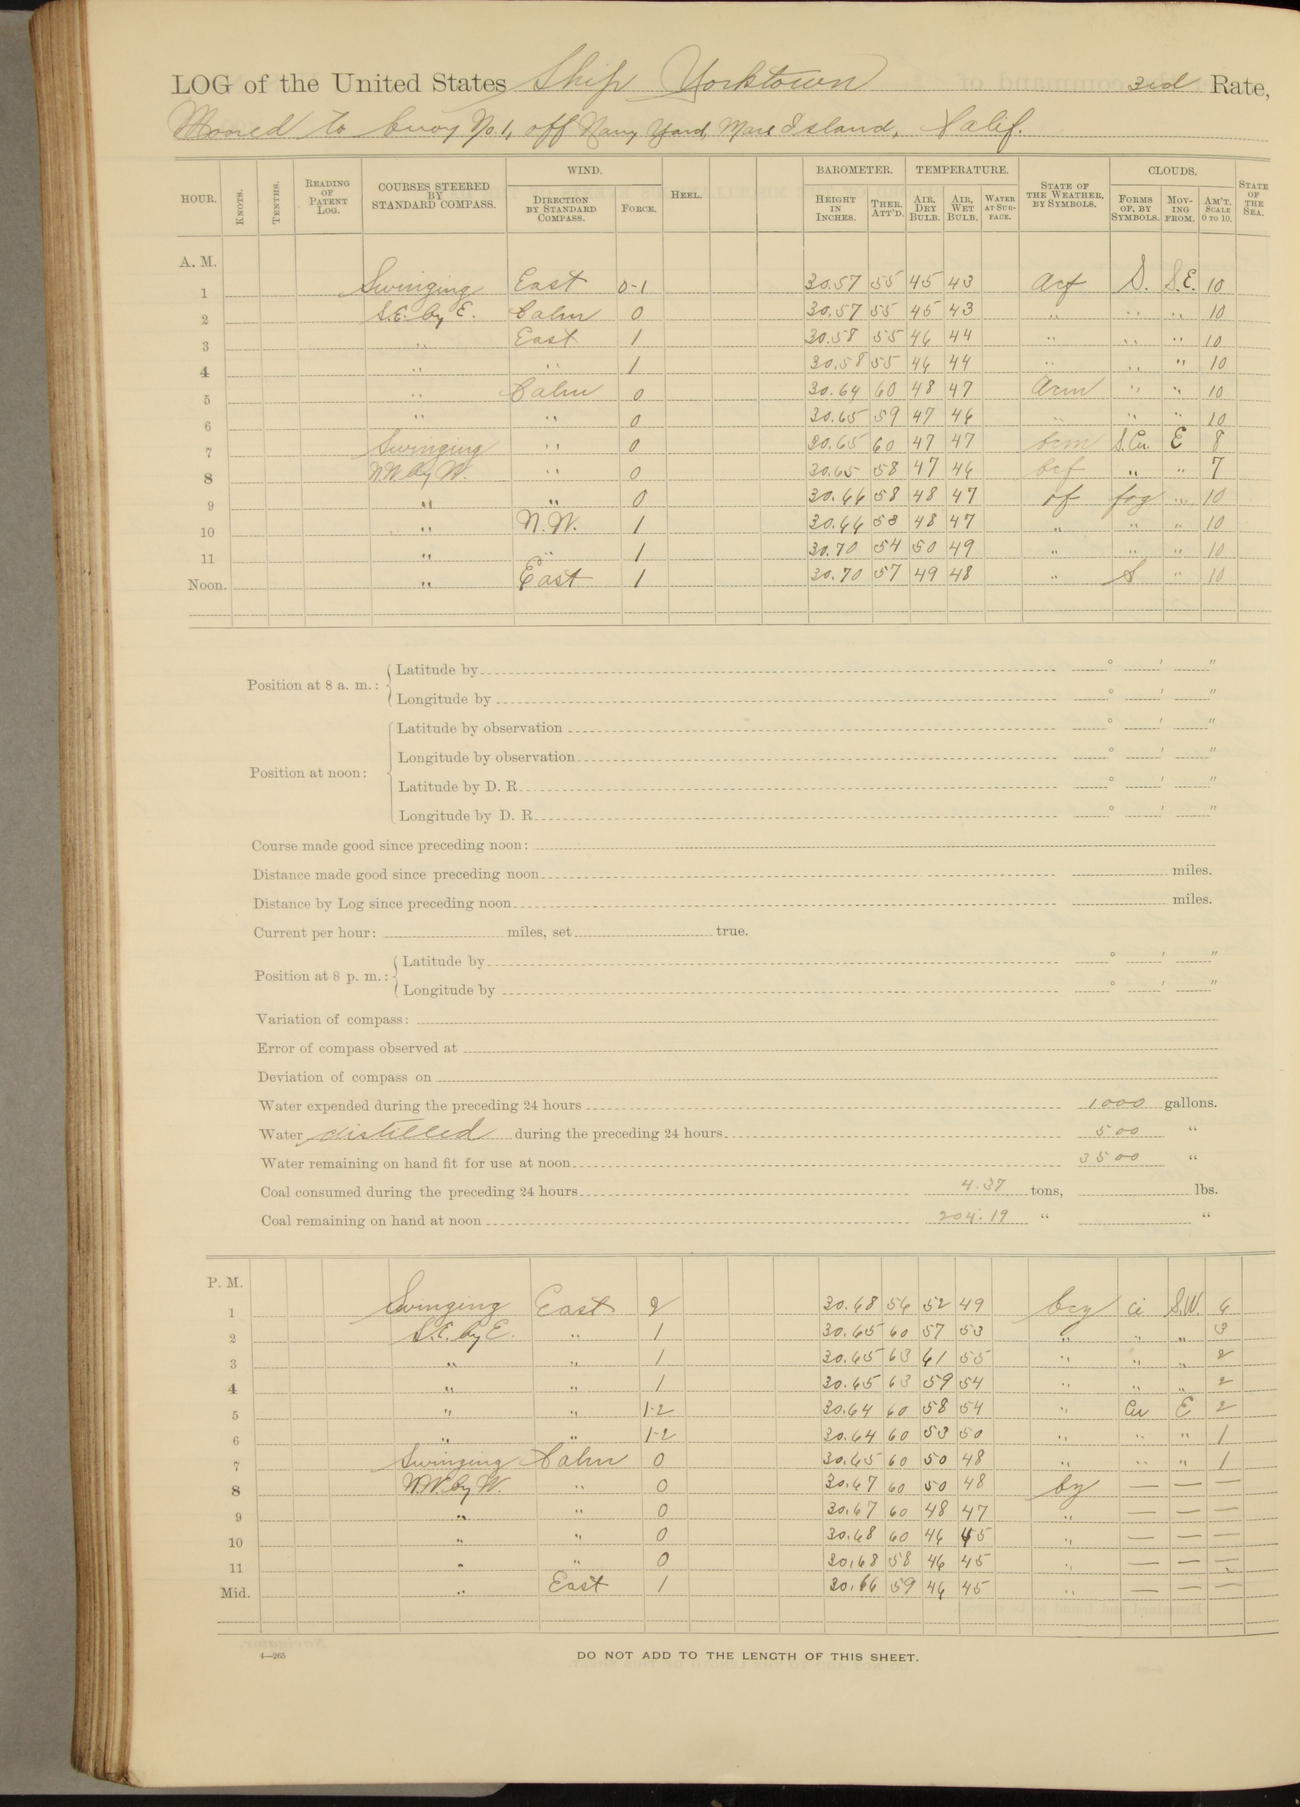 LOG of the United States Ship Yorktown 3rd Rate,
Moored to buoy No. 1, off Navy Yard, Mare Island, Calif.
HOUR. KNOTS. TENTHS. READING OF PATENT LOG. COURSES STEERED BY STANDARD COMPASS. WIND. DIRECTION BY STANDARD COMPASS. FORCE. HEEL. BAROMETER. HEIGHT IN INCHES. THER. ATT'D. TEMPERATURE. AIR, DRY BULB. AIR, WET BULB. WATER AT SURFACE. STATE OF THE WEATHER, BY SYMBOLS. CLOUDS. FORMS OF, BY SYMBOLS. MOVING FROM. AM'T. SCALE 0 TO 10. STATE OF THE SEA.
A. M.
1 Swinging East 0-1 30.57 55 45 43 S. S.E. 10
2 S.E. by E. Calm 0 30.57 55 45 43 " " " 10
3 " East 1 30.58 55 46 44 " " " 10
4 " " 1 30.58 55 46 44 " " " 10
5 " Calm 0 30.64 60 48 47 " " 10
6 " " 0 30.65 59 47 46 " " " 10
7 Swinging " 0 30.65 60 47 47 bcm S.Cu E 8
8 N.W. by W. " 0 30.65 58 47 46 bcf " " 7
9 " " 0 30.66 58 48 47 of fog " 10
10 " N.W. 1 30.66 58 48 47 " " " 10
11 " " 1 30.70 54 50 49 " " " 10
Noon. " East 1 30.70 57 49 48 " S " 10
Position at 8 a. m.: Latitude by ° ′ ″
Longitude by ° ′ ″
Position at noon: Latitude by observation ° ′ ″
Longitude by observation ° ′ ″
Latitude by D. R. ° ′ ″
Longitude by D. R. ° ′ ″
Course made good since preceding noon:
Distance made good since preceding noon miles.
Distance by Log since preceding noon miles.
Current per hour: miles, set true.
Position at 8 p. m.: Latitude by ° ′ ″
Longitude by ° ′ ″
Variation of compass:
Error of compass observed at
Deviation of compass on
Water expended during the preceding 24 hours 1000 gallons.
Water distilled during the preceding 24 hours 500 "
Water remaining on hand fit for use at noon 3500 "
Coal consumed during the preceding 24 hours 4.37 tons, lbs.
Coal remaining on hand at noon 204.19 " "
P. M.
1 Swinging East 2 30.68 56 52 49 bcy Ci S.W. 6
2 S.E. by E. " 1 30.65 60 57 53 " " " 3
3 " " 1 30.65 63 61 55 " " " 2
4 " " 1 30.65 63 59 54 " " " 2
5 " " 1-2 30.64 60 58 54 " Cu E 2
6 " " 1-2 30.64 60 53 50 " " " 1
7 Swinging Calm 0 30.65 60 50 48 " " " 1
8 N.W. by W. " 0 30.67 60 50 48 by — — —
9 " " 0 30.67 60 48 47 " — — —
10 " " 0 30.68 60 46 45 " — — —
11 " " 0 30.68 58 46 45 " — — —
Mid. " East 1 30.66 59 46 45 " — — —
4—265 DO NOT ADD TO THE LENGTH OF THIS SHEET.